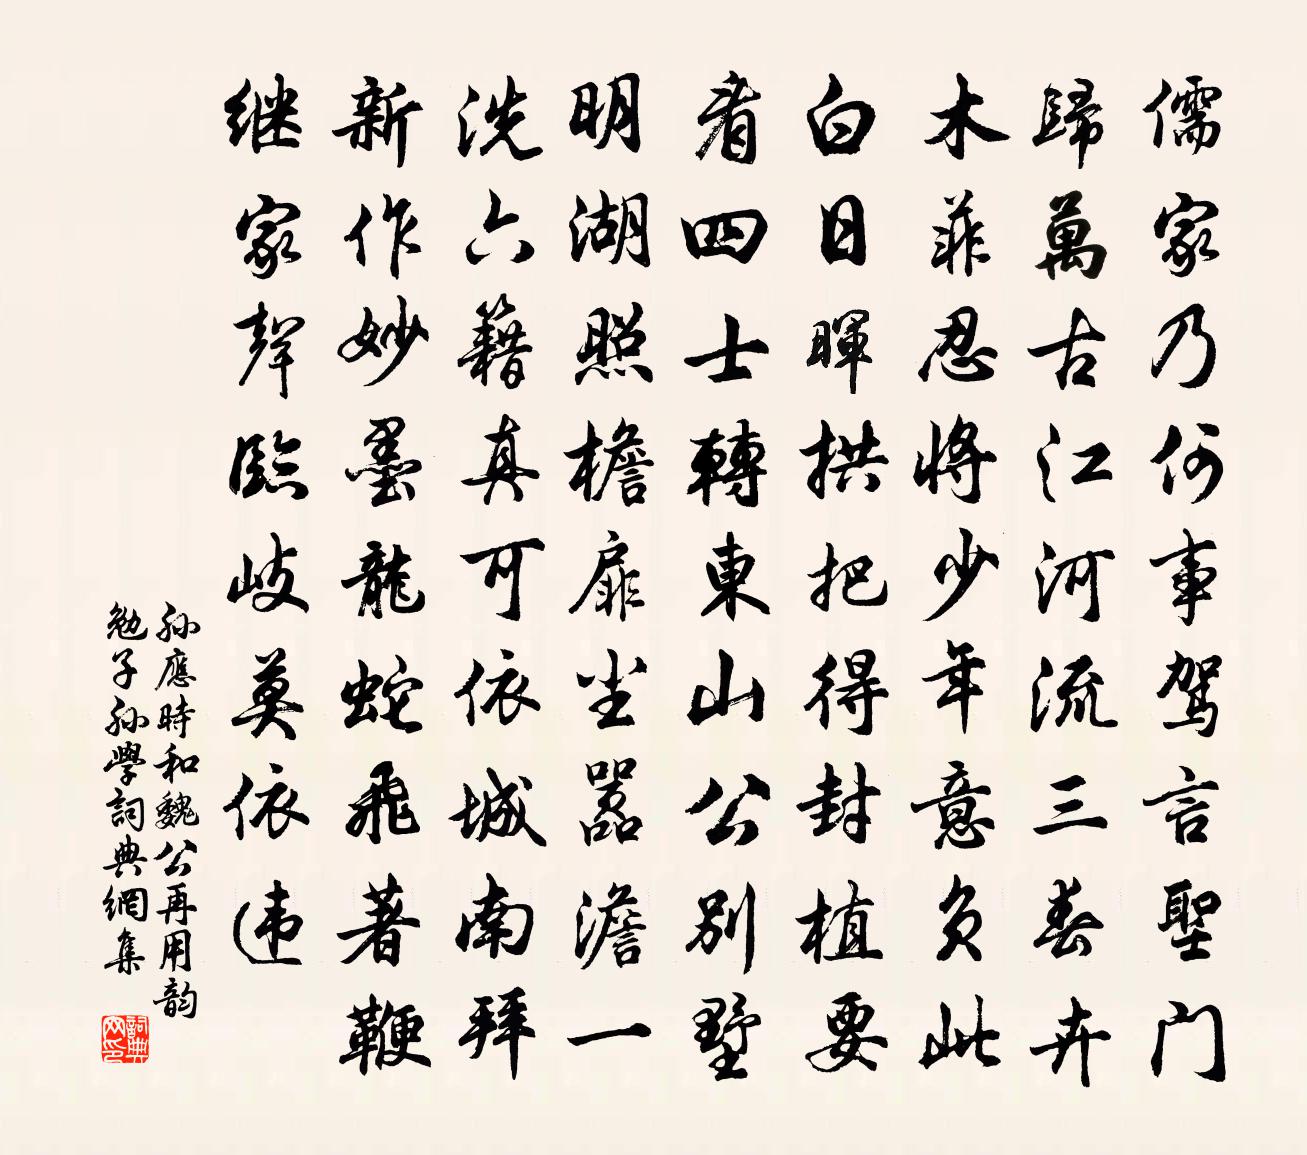 儒家乃何事駕言聖门
歸萬古江河流三春卉
木菲忍將少年意負此
白日暉拱把得封植要
看四士轉東山公别墅
明湖照檐扉坐嚣澹一
洗六籍真可依城南拜
新作妙墨龍蛇飛著鞭
继家聲臨岐莫依违
孙應時和魏公再用韵
勉子孙學詞典網集
詞典